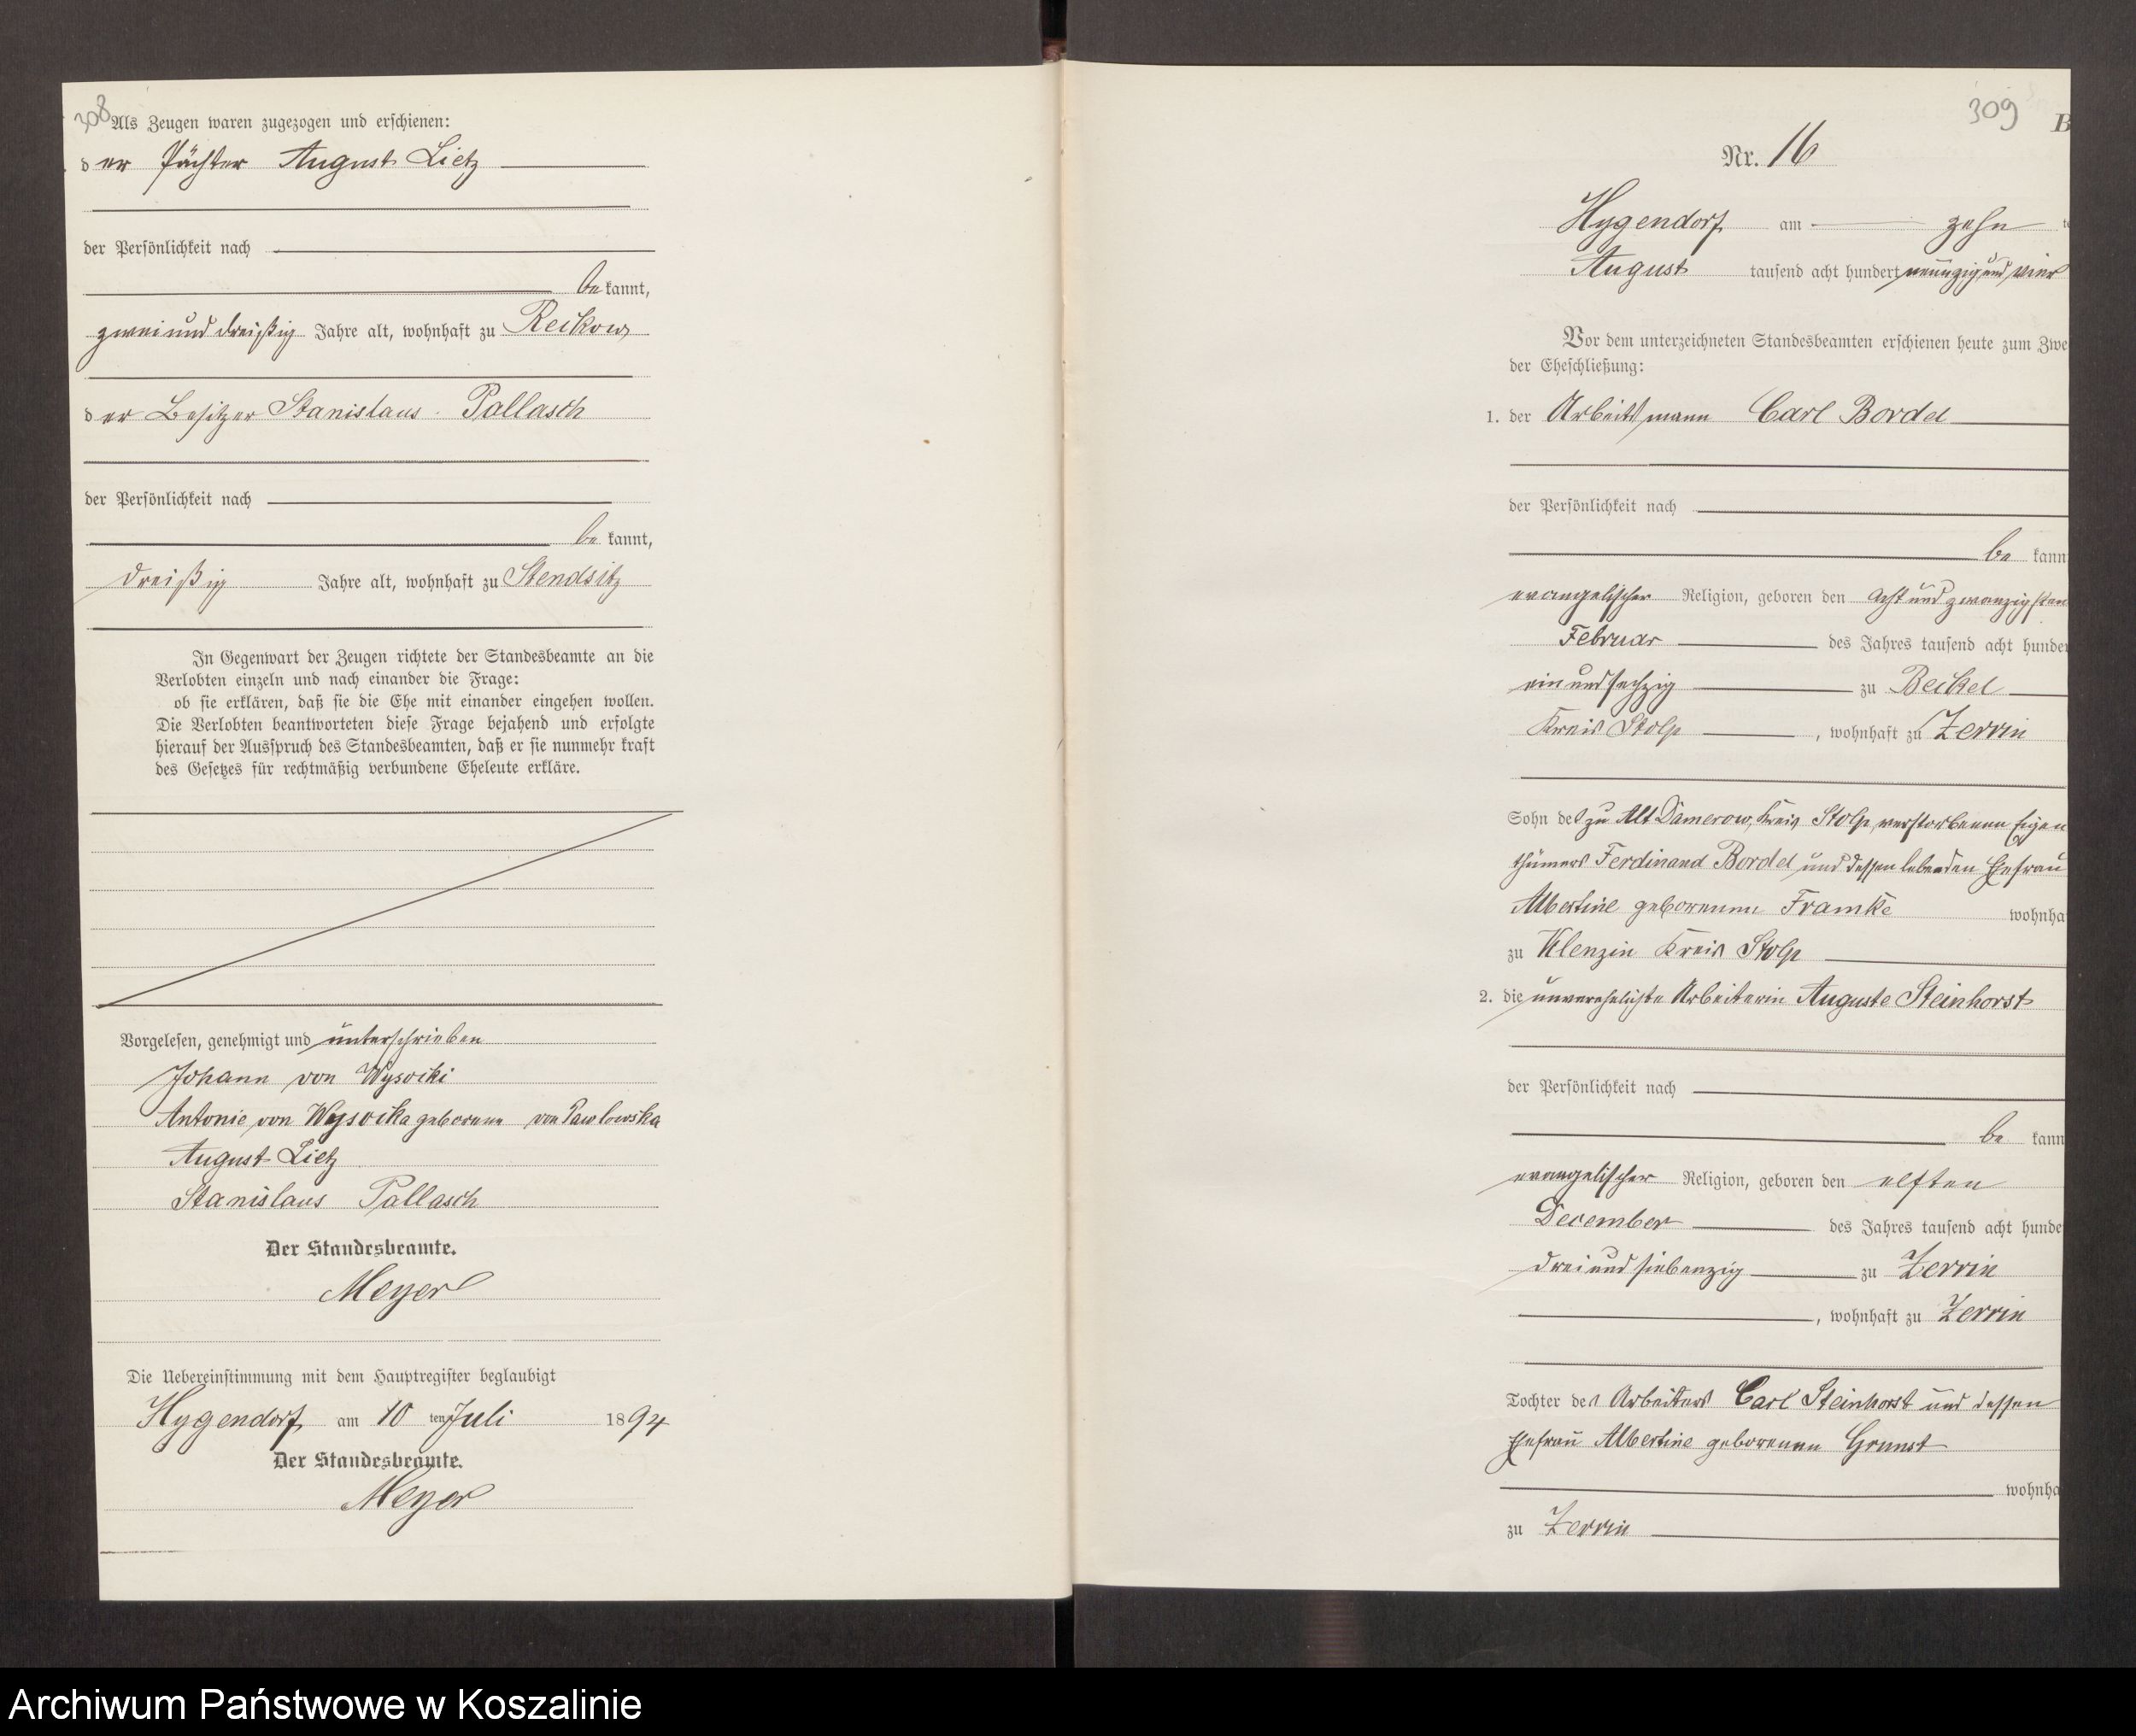 308
Als Zeugen waren zugezogen und erschienen:
der Pächter August Lietz
der Persönlichkeit nach
be kannt,
zwei und dreißig Jahre alt, wohnhaft zu Reckow
der Besitzer Stanislaus Pallasch
der Persönlichkeit nach
be kannt,
dreißig Jahre alt, wohnhaft zu Stendsitz
In Gegenwart der Zeugen richtete der Standesbeamte an die
Verlobten einzeln und nach einander die Frage:
ob sie erklären, daß sie die Ehe mit einander eingehen wollen.
Die Verlobten beantworteten diese Frage bejahend und erfolgte
hierauf der Ausspruch des Standesbeamten, daß er sie nunmehr kraft
des Gesetzes für rechtmäßig verbundene Eheleute erkläre.
Vorgelesen, genehmigt und unterschrieben
Johann von Wysocki
Antonie von Wysocka geborene von Pawlowska
August Lietz
Stanislaus Pallasch
Der Standesbeamte.
Meyer
Die Uebereinstimmung mit dem Hauptregister beglaubigt
Hygendorf am 10 ten Juli 1894
Der Standesbeamte.
Meyer
309
B
Nr. 16
Hygendorf am zehn te
August tausend acht hundert neunzig und vier
Vor dem unterzeichneten Standesbeamten erschienen heute zum Zwe
der Eheschließung:
1. der Arbeitsmann Carl Bordel
der Persönlichkeit nach
be kann
evangelischer Religion, geboren den acht und zwanzigsten
Februar des Jahres tausend acht hunder
ein und sechzig zu Beckel
Kreis Stolp, wohnhaft zu Zerrin
Sohn des zu Alt Damerow, Kreis Stolp verstorbenen Eigen
thümers Ferdinand Bordel und dessen lebenden Ehefrau
Albertine geborenen Framke wohnha
zu Klenzin Kreis Stolp
2. die unverehelichte Arbeiterin Auguste Steinhorst
der Persönlichkeit nach
be kann
evangelischer Religion, geboren den elften
December des Jahres tausend acht hunde
drei und siebenzig zu Zerrin
, wohnhaft zu Zerrin
Tochter des Arbeiters Carl Steinhorst und dessen
Ehefrau Albertine geborenen Grunst
wohnha
zu Zerrin
Archiwum Państwowe w Koszalinie